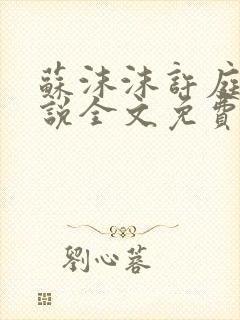 蘇沫沫許庭
說全文免費
劉心蓉